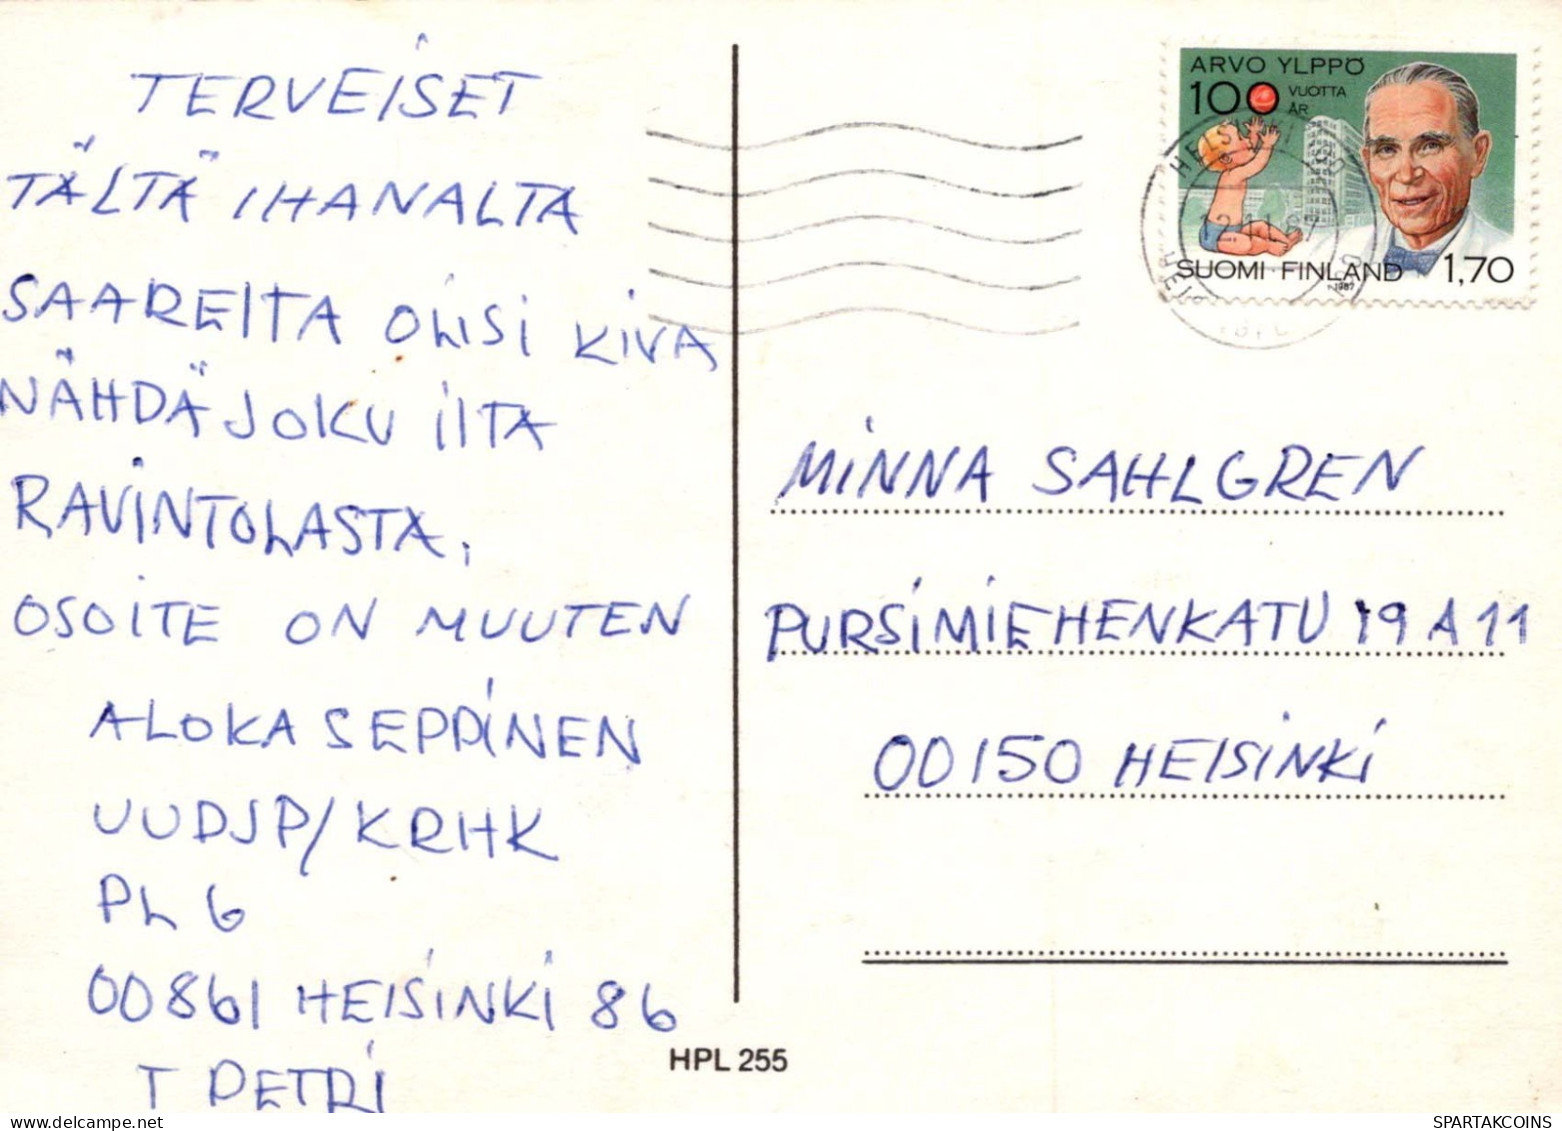 TERVEISET
TÄLTÄ IHANALTA
SAARELTA OLISI KIVA
NÄHDÄ JOKU ILTA
RAVINTOLASTA.
OSOITE ON MUUTEN
ALOKAS EPPINEN
UUDJP/KRHK
PL 6
00861 HELSINKI 86
T PETRI
ARVO YLPPÖ
100 VUOTTA
ÅR
12.11.87
SUOMI·FINLAND 1,70
1987
MINNA SAHLGREN
PURSIMIEHENKATU 19 A 11
00150 HELSINKI
HPL 255
SPARTAKCOINS